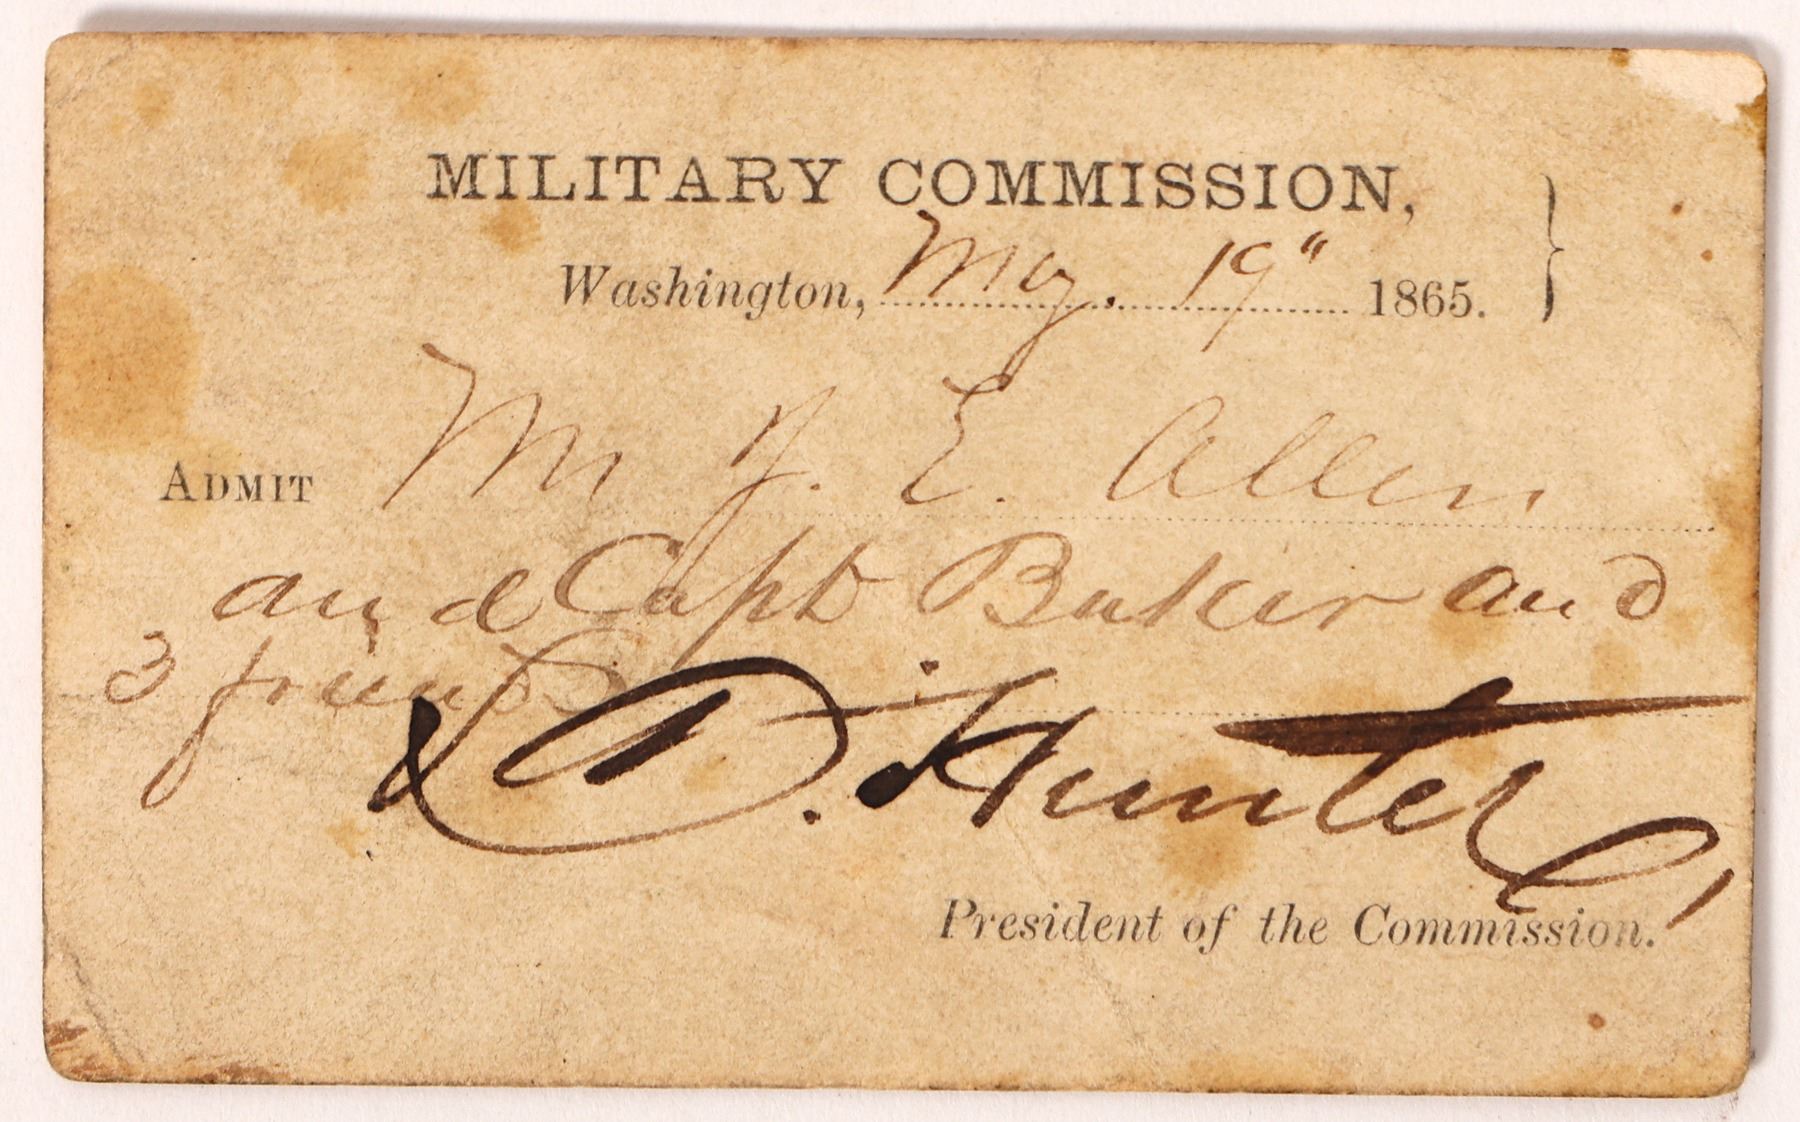 MILITARY COMMISSION,
Washington, May. 19" 1865.
ADMIT Mr J. E. Allen
and Capt Baker and
3 friends
D. Hunter,
President of the Commission.